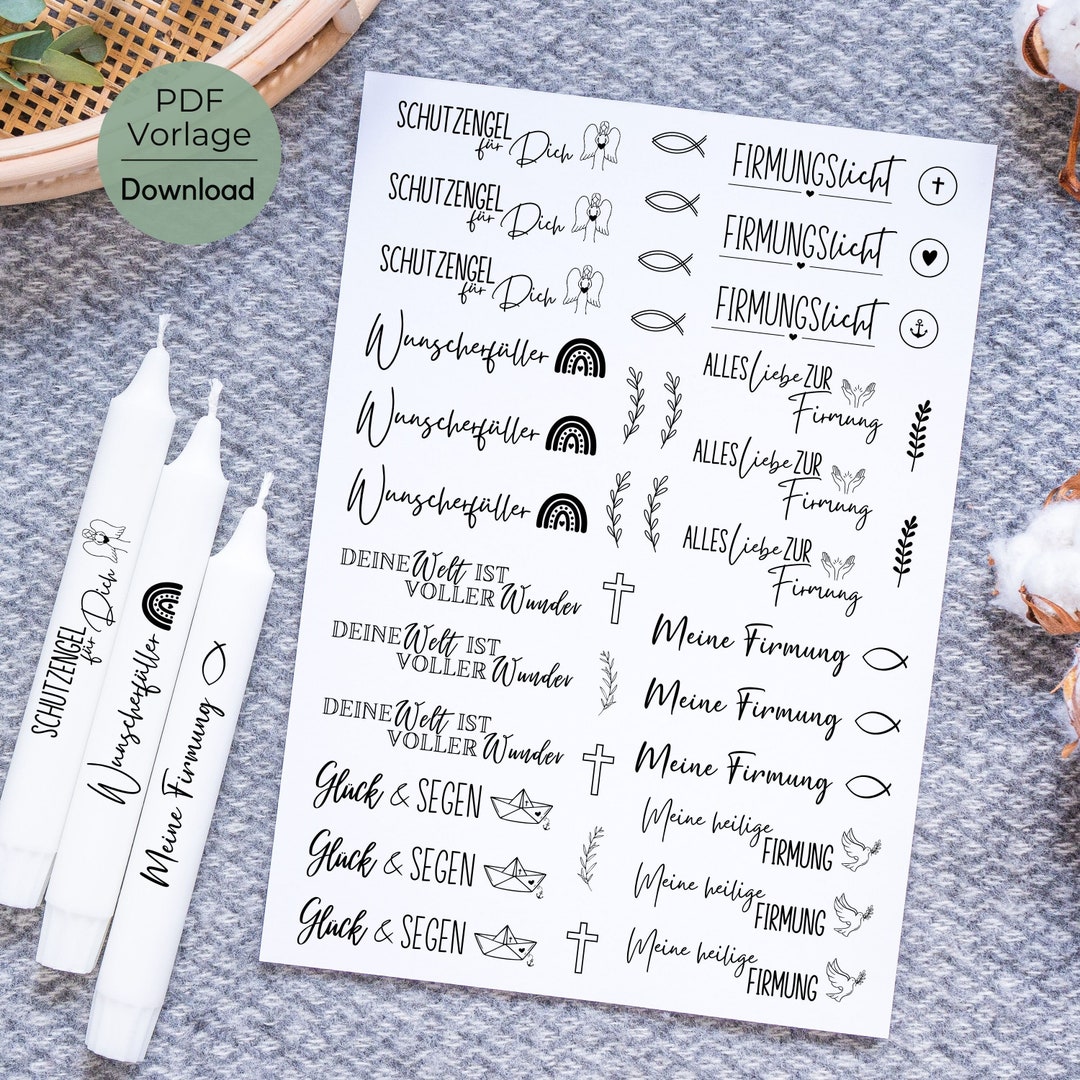 PDF
Vorlage
Download
SCHUTZENGEL
für Dich
SCHUTZENGEL
für Dich
SCHUTZENGEL
für Dich
Wunscherfüller
Wunscherfüller
Wunscherfüller
DEINE Welt IST
VOLLER Wunder
DEINE Welt IST
VOLLER Wunder
DEINE Welt IST
VOLLER Wunder
Glück & SEGEN
Glück & SEGEN
Glück & SEGEN
FIRMUNGSlicht
FIRMUNGSlicht
FIRMUNGSlicht
ALLES Liebe ZUR
Firmung
ALLES Liebe ZUR
Firmung
ALLES Liebe ZUR
Firmung
Meine Firmung
Meine Firmung
Meine Firmung
Meine heilige
FIRMUNG
Meine heilige
FIRMUNG
Meine heilige
FIRMUNG
SCHUTZENGEL
für Dich
Wunscherfüller
Meine Firmung